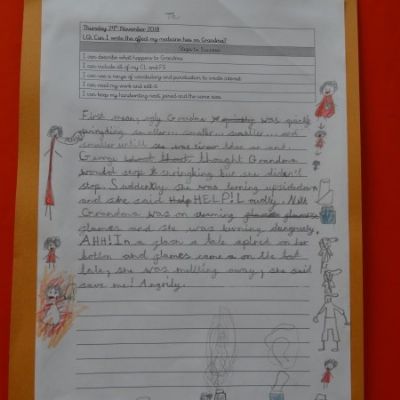 Thursday 29th November 2018
LO: Can I write the effect my medicine has on Grandma?
Steps to Success
I can describe what happens to Grandma
I can include all of my CL and FS
I can use a range of vocabulary and punctuation to create interest
I can read my work and edit it
I can keep my handwriting neat, joined and the same size.
First mean, ugly Grandma was
smaller... smaller... smaller... and
smaller until she was like an ant.
George thought Grandma
stop shringking but she didn't
stop. Suddenly she was turning upsidedown
and she said HELP! Loudly. Next
Grandma was on
flames and she was burning dangrusly.
AHH! In a flash a tale on her
bottom and flames came on the bot
tale, she was melting away, she said
save me! Angrily.